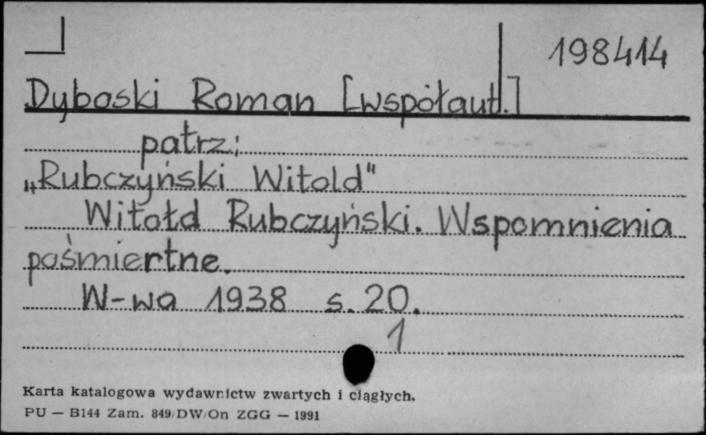 198414
Dyboski Roman [współaut.]
patrz:
„Rubczyński Witold"
Witołd Rubczyński. Wspomnienia
pośmiertne.
W-wa 1938 s. 20.
1
Karta katalogowa wydawnictw zwartych i ciągłych.
PU — B144 Zam. 849/DW/On ZGG — 1991